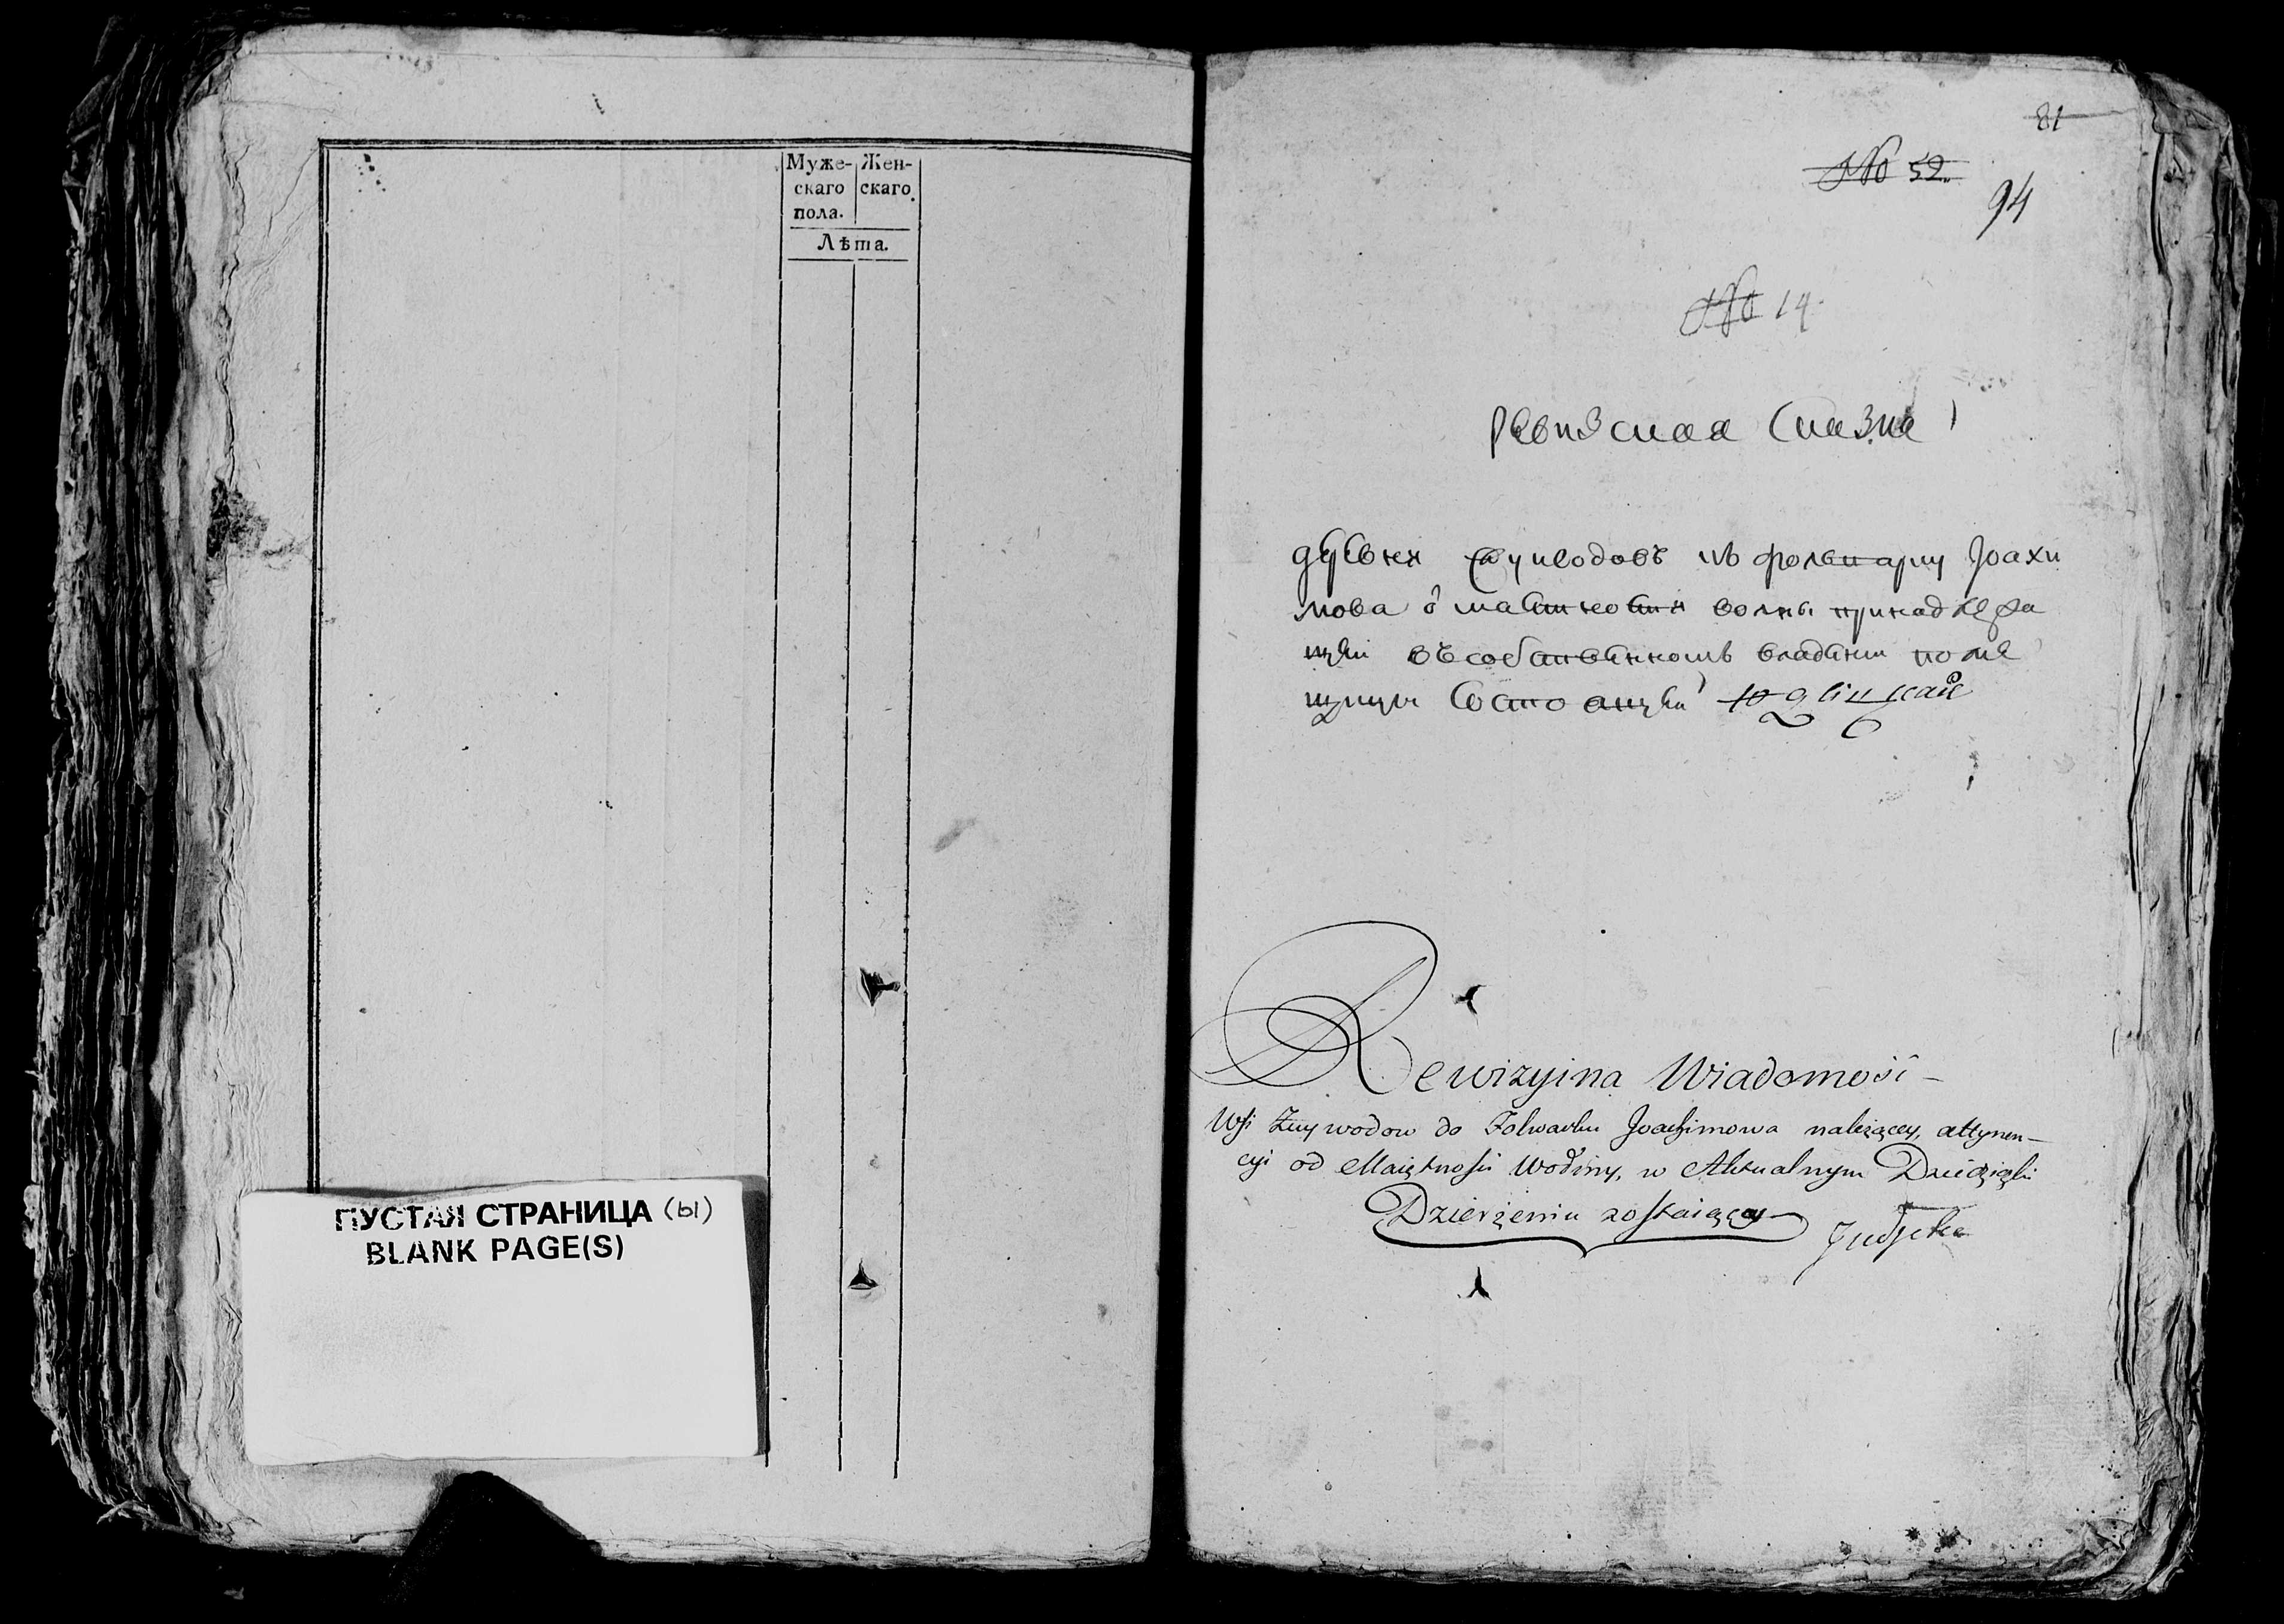 Муже-
скаго
пола.
Жен-
скаго.
Лѣта.
ПУСТАЯ СТРАНИЦА (ы)
BLANK PAGE(S)
81
No 52.
94
No 14.
Ревизская Сказка
деревня къ фольварку Іоахи
мова принадлежа
щей въ собственномъ владении поме
щицы состоящей
Rewizyina Wiadomość –
Wsi Żuywodow do Folwarku Joachimowa należącey, attynen–
cyi od Maiętności Wodiny, w Aktualnym Dziedzictwie
Dzierżeniu zostaiącey